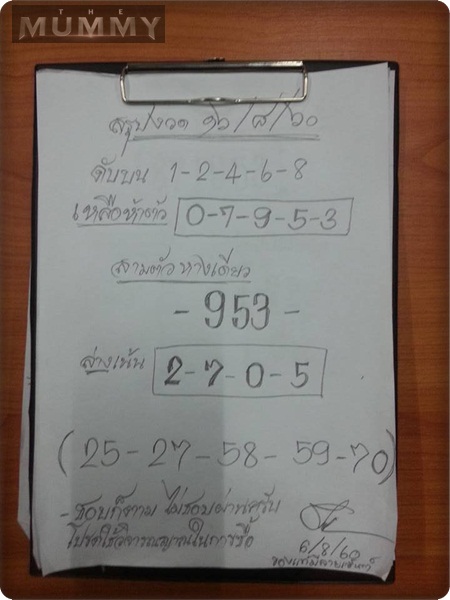 THE
MUMMY
สรุปงวด ๑๖/๘/๖๐
ดับบน 1-2-4-6-8
เหลือห้าตัว 0-7-9-5-3
สามตัวทางเดียว
- 953 -
ล่างเน้น 2-7-0-5
(25-27-58-59-70)
- ชอบก็ตาม ไม่ชอบผ่านครับ
โปรดใช้วิจารณญาณในการซื้อ
6/8/60
ของแท้มีลายเซ็นต์